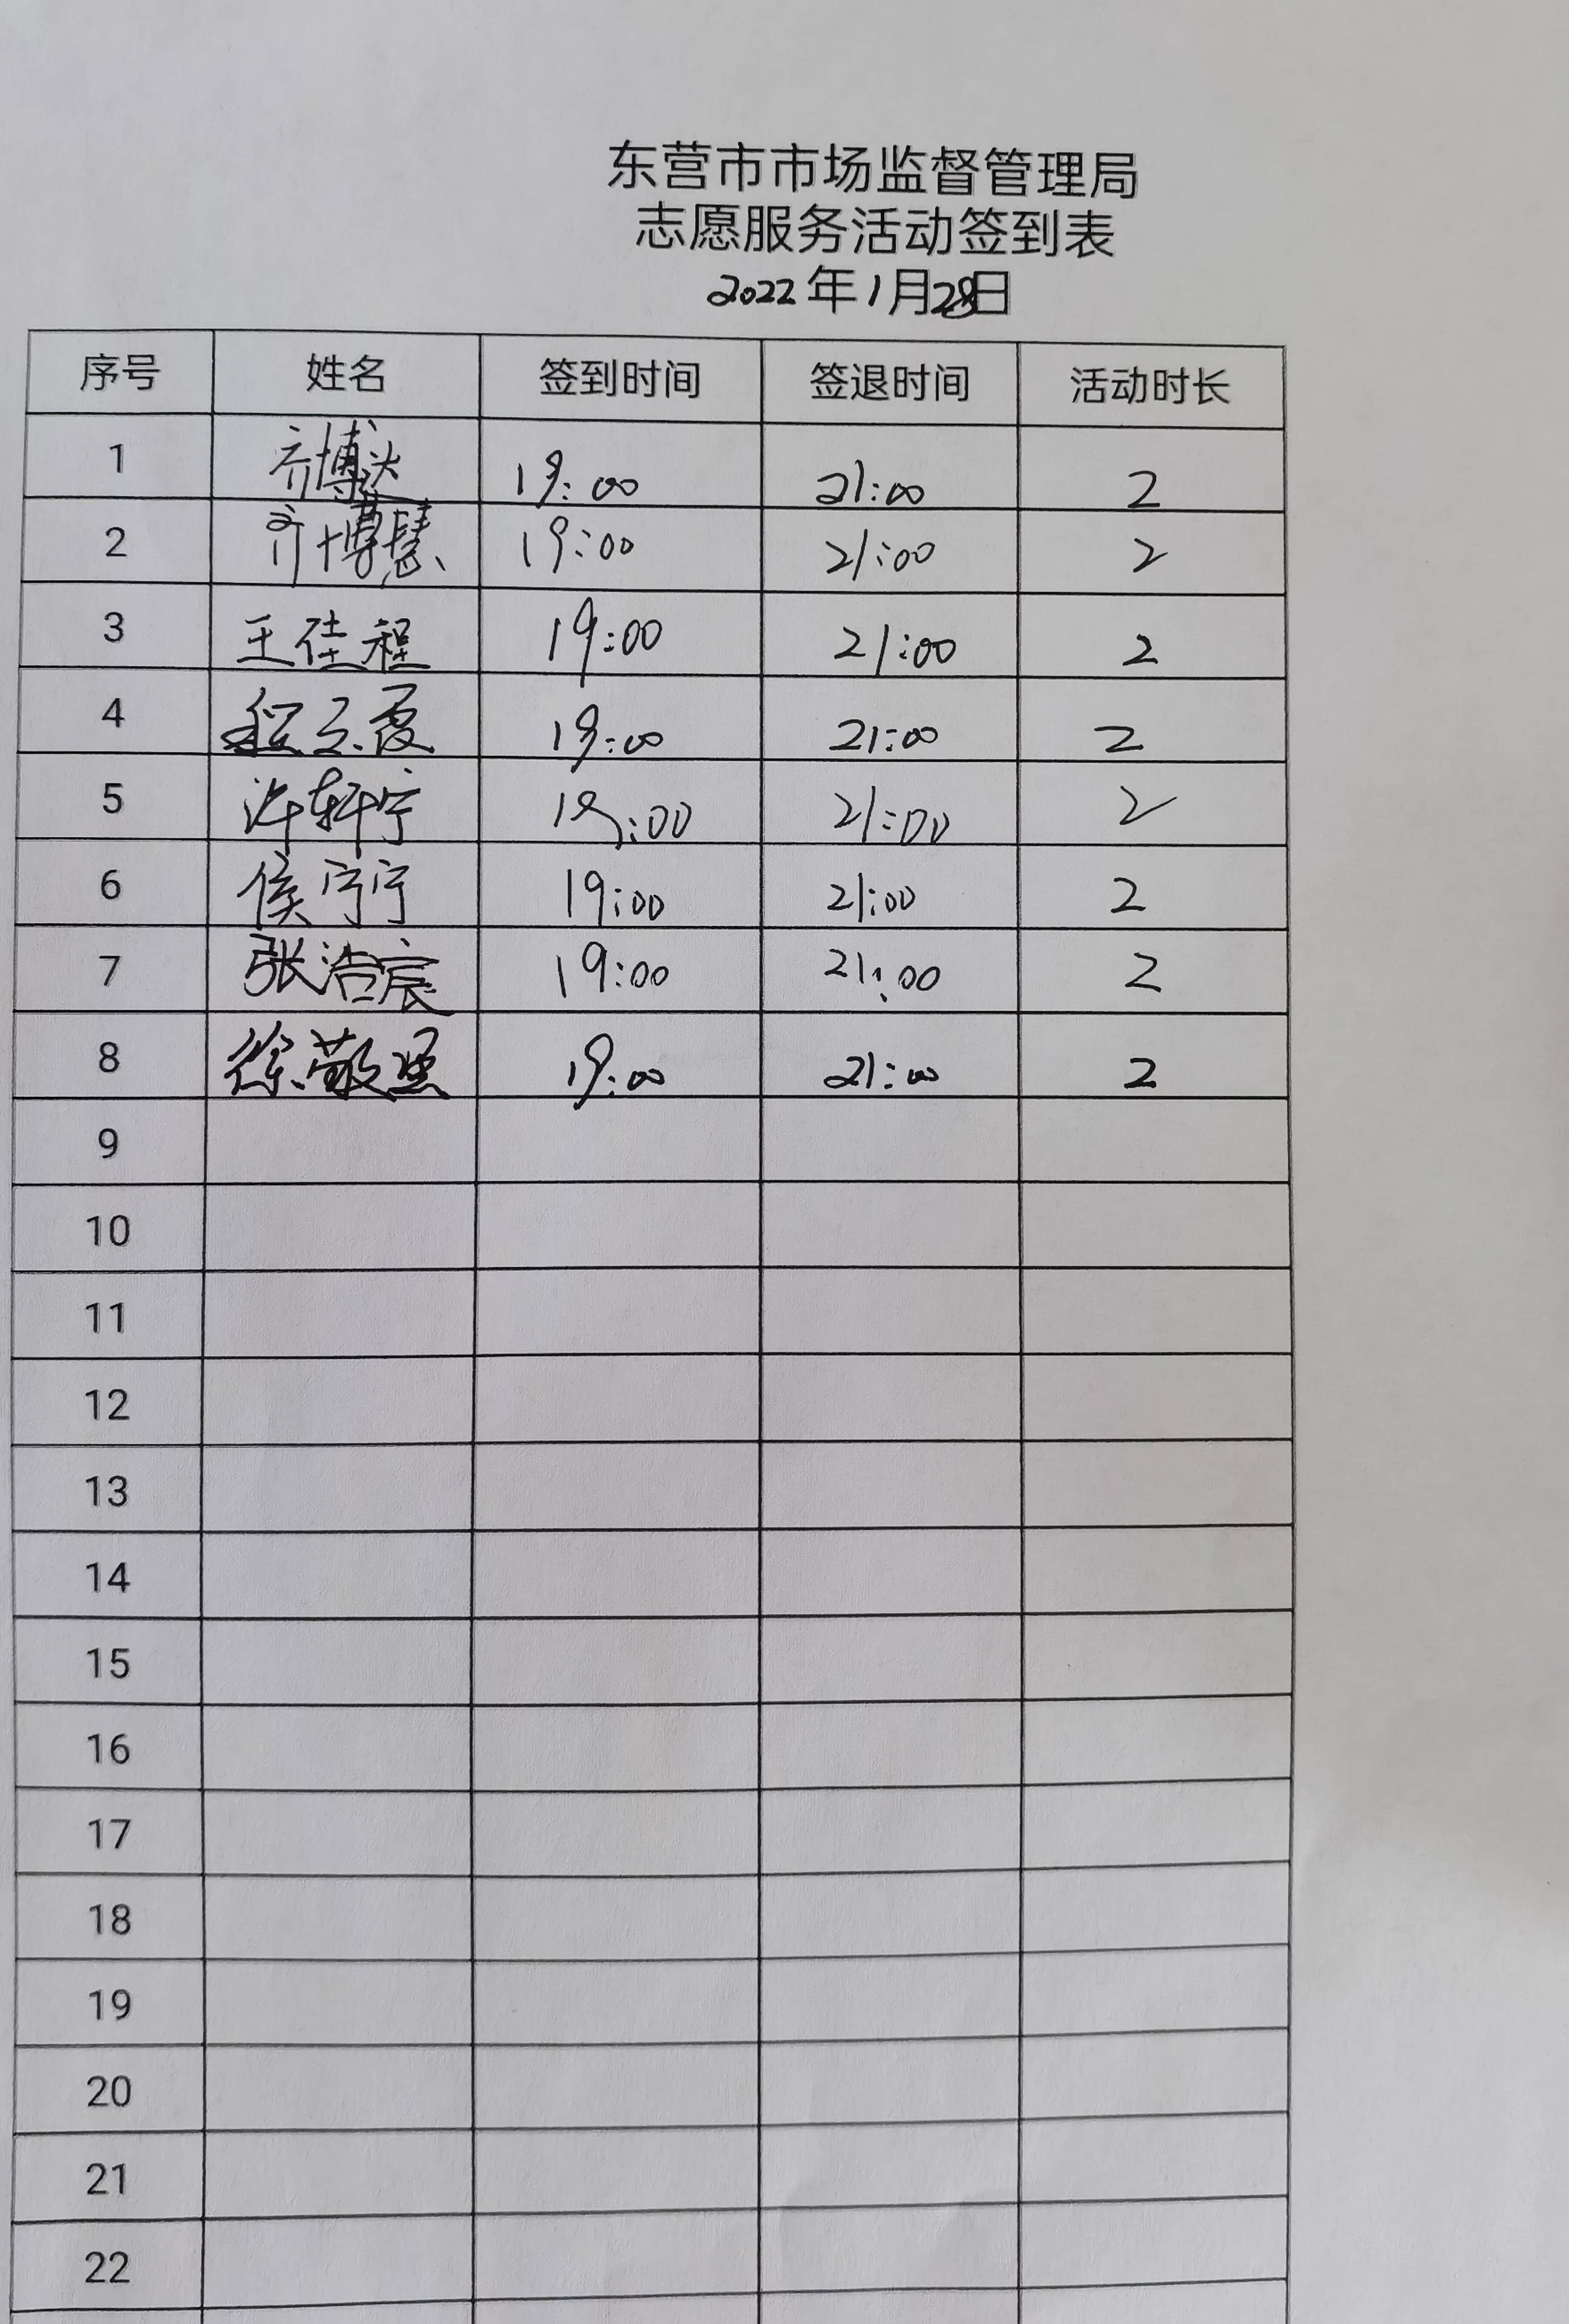 东营市市场监督管理局
志愿服务活动签到表
2022年1月28日
序号 姓名 签到时间 签退时间 活动时长
1 齐博达 19:00 21:00 2
2 齐博慧 19:00 21:00 2
3 王佳程 19:00 21:00 2
4 程云霞 19:00 21:00 2
5 许轩宁 19:00 21:00 2
6 侯宁宁 19:00 21:00 2
7 张浩宸 19:00 21:00 2
8 徐敬 19:00 21:00 2
9
10
11
12
13
14
15
16
17
18
19
20
21
22